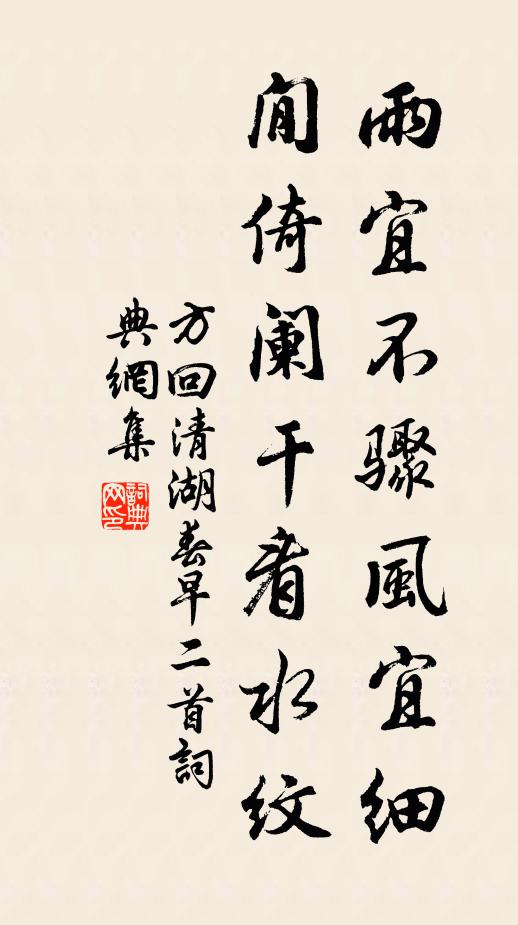 雨宜不骤風宜细
闲倚阑干看水纹
方回清湖春早二首詞
典網集
詞典網印